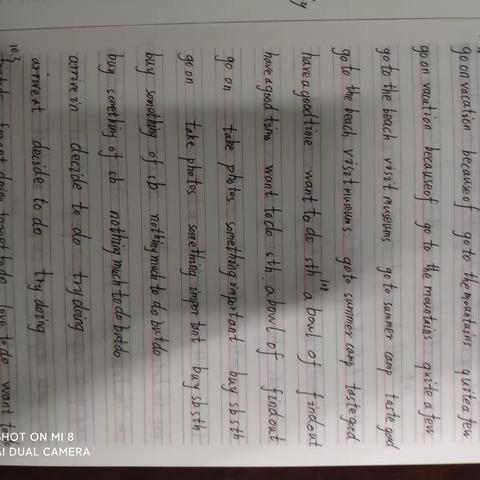 go on vacation because of go to the mountains quite a few
go on vacation because of go to the mountains quite a few
go to the beach visit museums go to summer camp taste good
go to the beach visit museums go to summer camp taste good
have a good time want to do sth a bowl of find out
have a good time want to do sth. a bowl of find out
go on take photos something important buy sb sth
go on take photos something important buy sb sth
buy something of sb nothing much to do but do
buy something of sb nothing much to do but do
arrive in decide to do try doing
arrive at decide to do try doing
10.3
forget doing forget to do love to do want to
SHOT ON MI 8
AI DUAL CAMERA